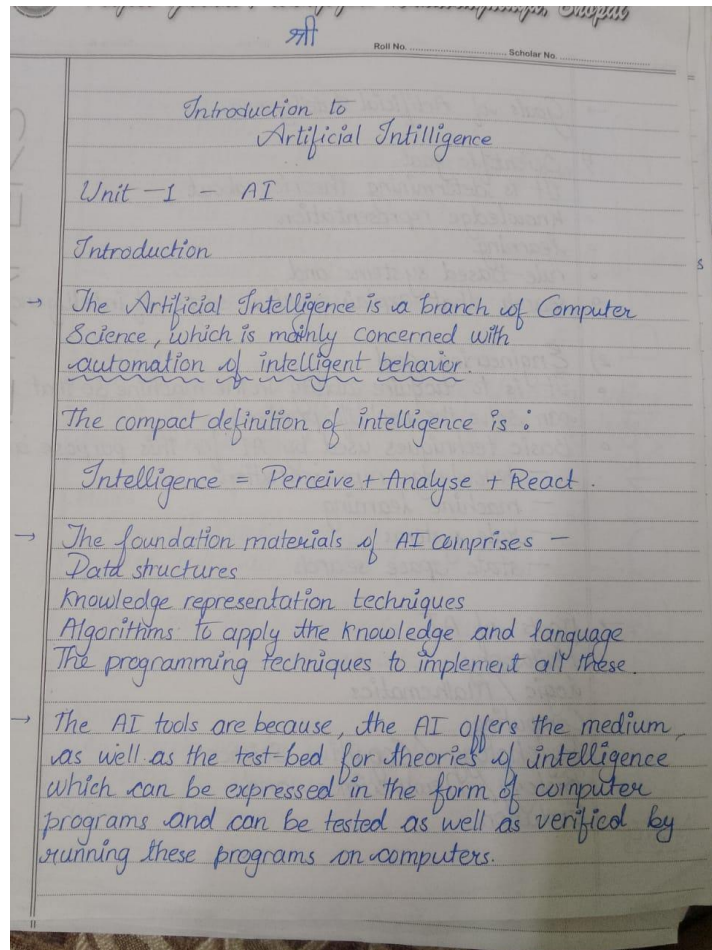 श्री
Roll No. Scholar No.
Introduction to
Artificial Intilligence
Unit -1 - AI
Introduction
→ The Artificial Intelligence is a branch of Computer
Science, which is mainly concerned with
automation of intelligent behavior.
The compact definition of intelligence is :
Intelligence = Perceive + Analyse + React.
→ The foundation materials of AI comprises -
Data structures
Knowledge representation techniques
Algorithms to apply the knowledge and language
The programming techniques to implement all these.
→ The AI tools are because, the AI offers the medium,
as well as the test-bed for theories of intelligence
which can be expressed in the form of computer
programs and can be tested as well as verified by
running these programs on computers.